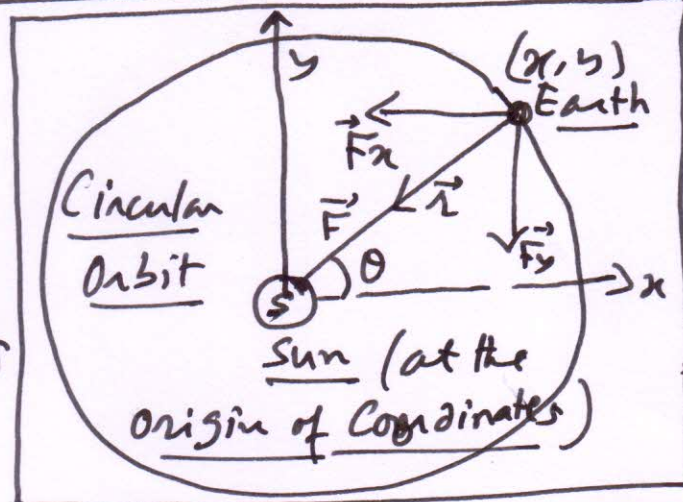 y
(x, y)
Earth
F⃗x
Circular
Orbit
F⃗
r⃗
θ
F⃗y
x
S
Sun (at the
origin of Coordinates)